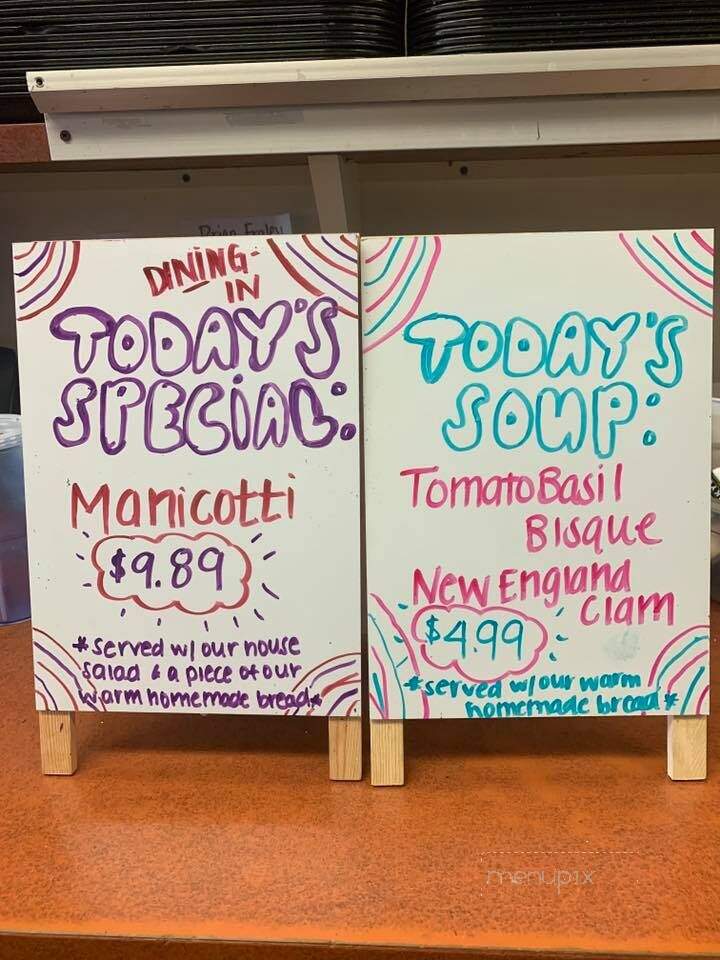 Brian Fraley
DINING-
IN
TODAY'S
SPECIAL:
Manicotti
$9.89
*served w/ our house
salad & a piece of our
warm homemade bread*
TODAY'S
SOUP:
Tomato Basil
Bisque
New England
Clam
$4.99
*served w/ our warm
homemade bread*
menupix